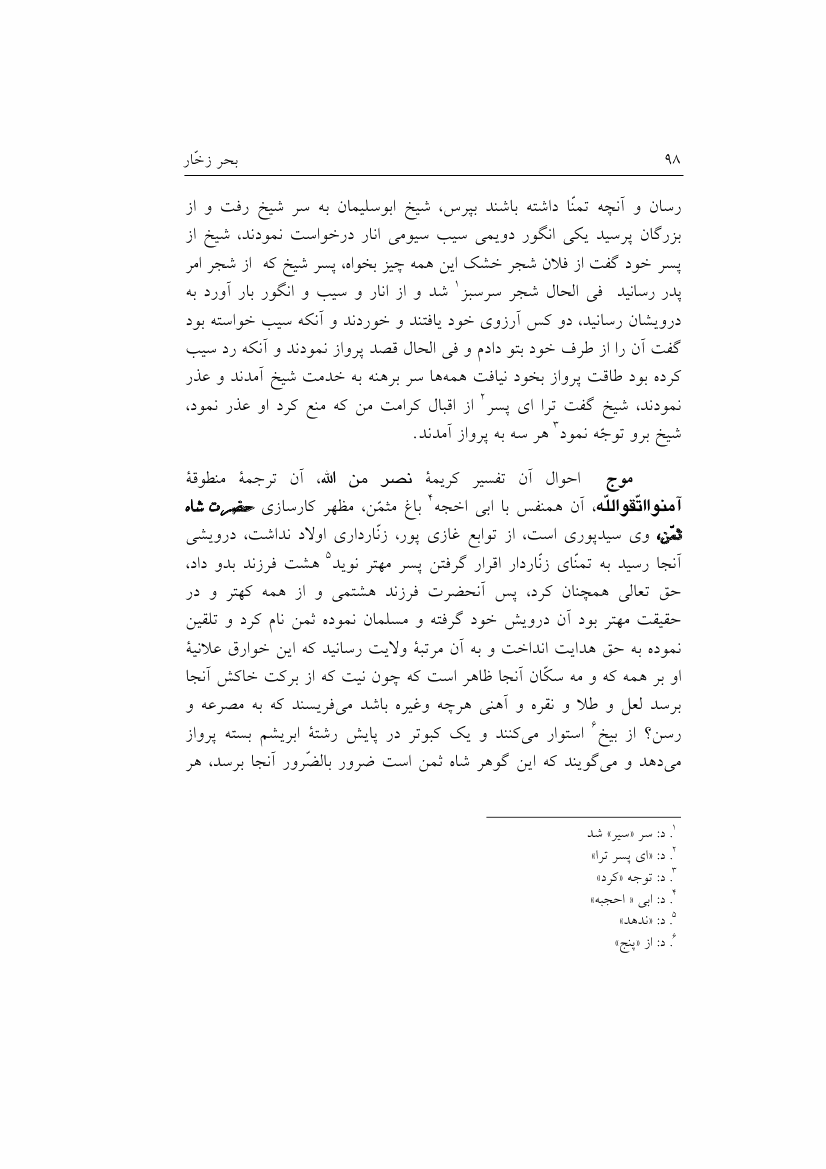 ۹۸ بحر زخّار
رسان و آنچه تمنّا داشته باشند بپرس، شیخ ابوسلیمان به سر شیخ رفت و از
بزرگان پرسید یکی انگور دویمی سیب سیومی انار درخواست نمودند، شیخ از
پسر خود گفت از فلان شجر خشک این همه چیز بخواه، پسر شیخ که از شجر امر
پدر رسانید فی الحال شجر سرسبز۱ شد و از انار و سیب و انگور بار آورد به
درویشان رسانید، دو کس آرزوی خود یافتند و خوردند و آنکه سیب خواسته بود
گفت آن را از طرف خود بتو دادم و فی الحال قصد پرواز نمودند و آنکه رد سیب
کرده بود طاقت پرواز بخود نیافت همه‌ها سر برهنه به خدمت شیخ آمدند و عذر
نمودند، شیخ گفت ترا ای پسر۲ از اقبال کرامت من که منع کرد او عذر نمود،
شیخ برو توجّه نمود۳ هر سه به پرواز آمدند.
موج احوال آن تفسیر کریمۀ نصر من الله، آن ترجمۀ منطوقۀ
آمنوااتّقواللّه، آن همنفس با ابی اخجه۴ باغ مثمّن، مظهر کارسازی حضرت شاه
ثمّن، وی سیدپوری است، از توابع غازی پور، زنّارداری اولاد نداشت، درویشی
آنجا رسید به تمنّای زنّاردار اقرار گرفتن پسر مهتر نوید۵ هشت فرزند بدو داد،
حق تعالی همچنان کرد، پس آنحضرت فرزند هشتمی و از همه کهتر و در
حقیقت مهتر بود آن درویش خود گرفته و مسلمان نموده ثمن نام کرد و تلقین
نموده به حق هدایت انداخت و به آن مرتبۀ ولایت رسانید که این خوارق علانیۀ
او بر همه که و مه سکّان آنجا ظاهر است که چون نیت که از برکت خاکش آنجا
برسد لعل و طلا و نقره و آهنی هرچه وغیره باشد می‌فریسند که به مصرعه و
رسن؟ از بیخ۶ استوار می‌کنند و یک کبوتر در پایش رشتۀ ابریشم بسته پرواز
می‌دهد و می‌گویند که این گوهر شاه ثمن است ضرور بالضّرور آنجا برسد، هر
۱. د: سر «سیر» شد
۲. د: «ای پسر ترا»
۳. د: توجه «کرد»
۴. د: ابی « احجبه»
۵. د: «ندهد»
۶. د: از «پنج»